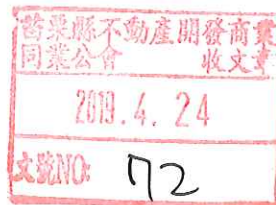 苗栗縣不動產開發商業
同業公會 收文章
2019. 4. 24
文號NO: 172